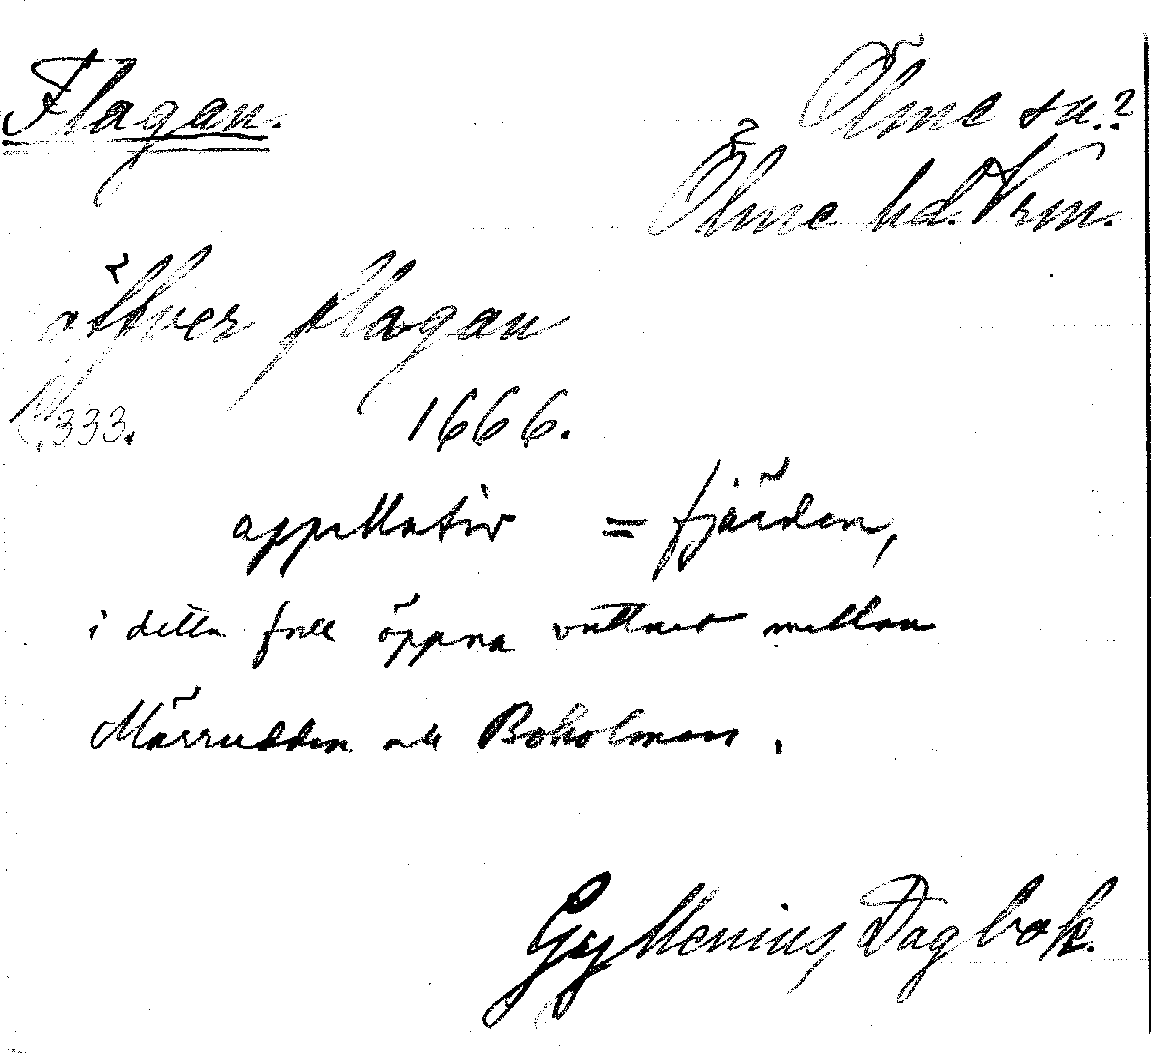 Flagan.
Ölme sn.?
Ölme hd. Vrm.
öffver flagan
s. 333. 1666.
appellativ = fjärden,
i detta fall öppna vattnet mellan
Märrudden och Boholmen.
Gyllenius, Dagbok.